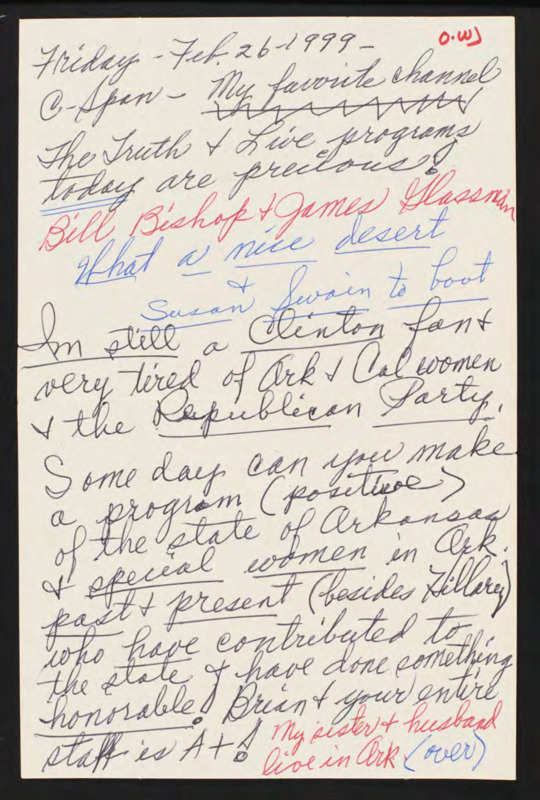 O.W.
Friday - Feb. 26-1999-
C-Span - My favorite channel
The Truth & Live programs
today are precious!
Bill Bishop & James Glassman
What a nice desert
&
Susan Swain to boot
Im still a Clinton fan &
very tired of Ark & Cal women
& the Republican Party.
Some day can you make
a program (positive)
of the state of Arkansas
& special women in Ark.
past & present (besides Hillary)
who have contributed to
the state & have done something
honorable! Brian & your entire
staff is A+!
My sister & husband
live in Ark (over)